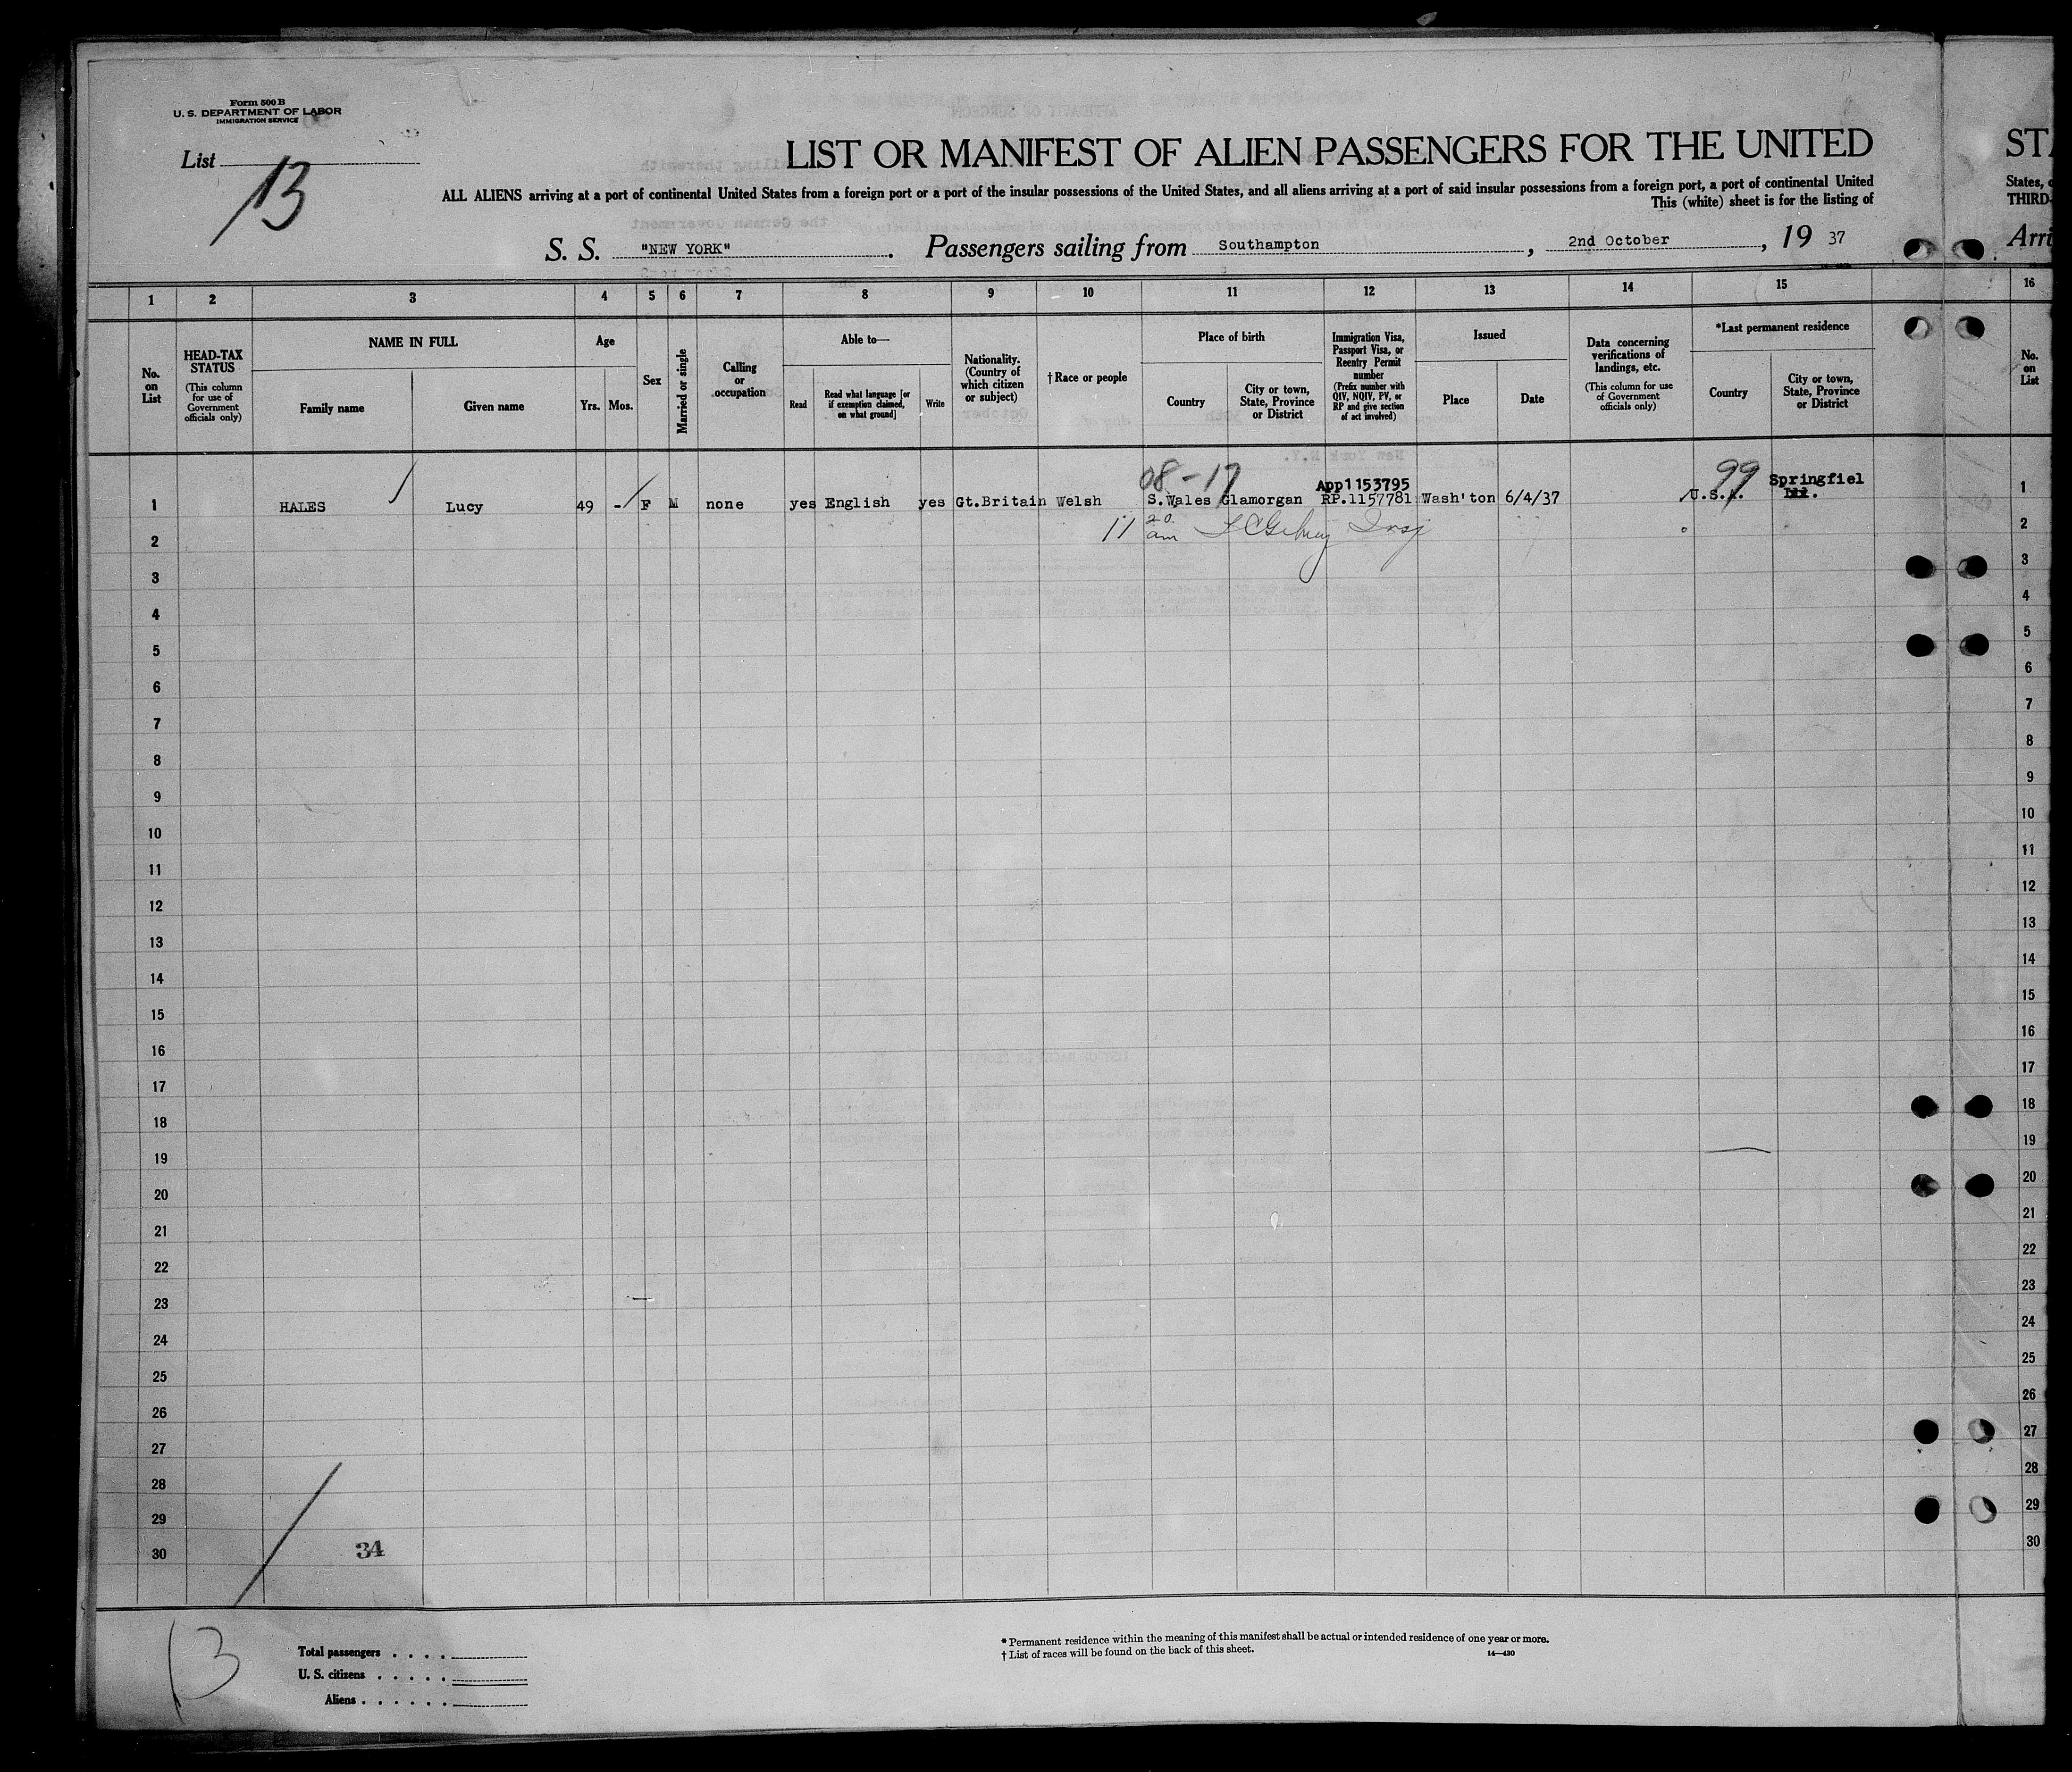 Form 500 B
U. S. DEPARTMENT OF LABOR
IMMIGRATION SERVICE
List 13
LIST OR MANIFEST OF ALIEN PASSENGERS FOR THE UNITED
ALL ALIENS arriving at a port of continental United States from a foreign port or a port of the insular possessions of the United States, and all aliens arriving at a port of said insular possessions from a foreign port, a port of continental United
This (white) sheet is for the listing of
S. S. "NEW YORK" . Passengers sailing from Southampton , 2nd October , 19 37
STA
States,
THIRD-
Arri
1 2 3 4 5 6 7 8 9 10 11 12 13 14 15 16
No. on List
HEAD-TAX STATUS
(This column for use of Government officials only)
NAME IN FULL
Family name
Given name
Age
Yrs. Mos.
Sex
Married or single
Calling or occupation
Able to—
Read
Read what language [or if exemption claimed, on what ground]
Write
Nationality. (Country of which citizen or subject)
† Race or people
Place of birth
Country
City or town, State, Province or District
Immigration Visa, Passport Visa, or Reentry Permit number
(Prefix number with QIV, NQIV, PV, or RP and give section of act involved)
Issued
Place
Date
Data concerning verifications of landings, etc.
(This column for use of Government officials only)
*Last permanent residence
Country
City or town, State, Province or District
No. on List
08-17
99
App1153795
Springfiel
1 HALES Lucy 49 - F M none yes English yes Gt.Britain Welsh S.Wales Glamorgan RP.1157781 Wash'ton 6/4/37 U.S.A. Ill. 1
11 20 am
2 2
3 3
4 4
5 5
6 6
7 7
8 8
9 9
10 10
11 11
12 12
13 13
14 14
15 15
16 16
17 17
18 18
19 19
20 20
21 21
22 22
23 23
24 24
25 25
26 26
27 27
28 28
29 29
30 30
34
13
Total passengers . . . .
U. S. citizens . . . . .
Aliens . . . . . .
* Permanent residence within the meaning of this manifest shall be actual or intended residence of one year or more.
† List of races will be found on the back of this sheet.
14—430